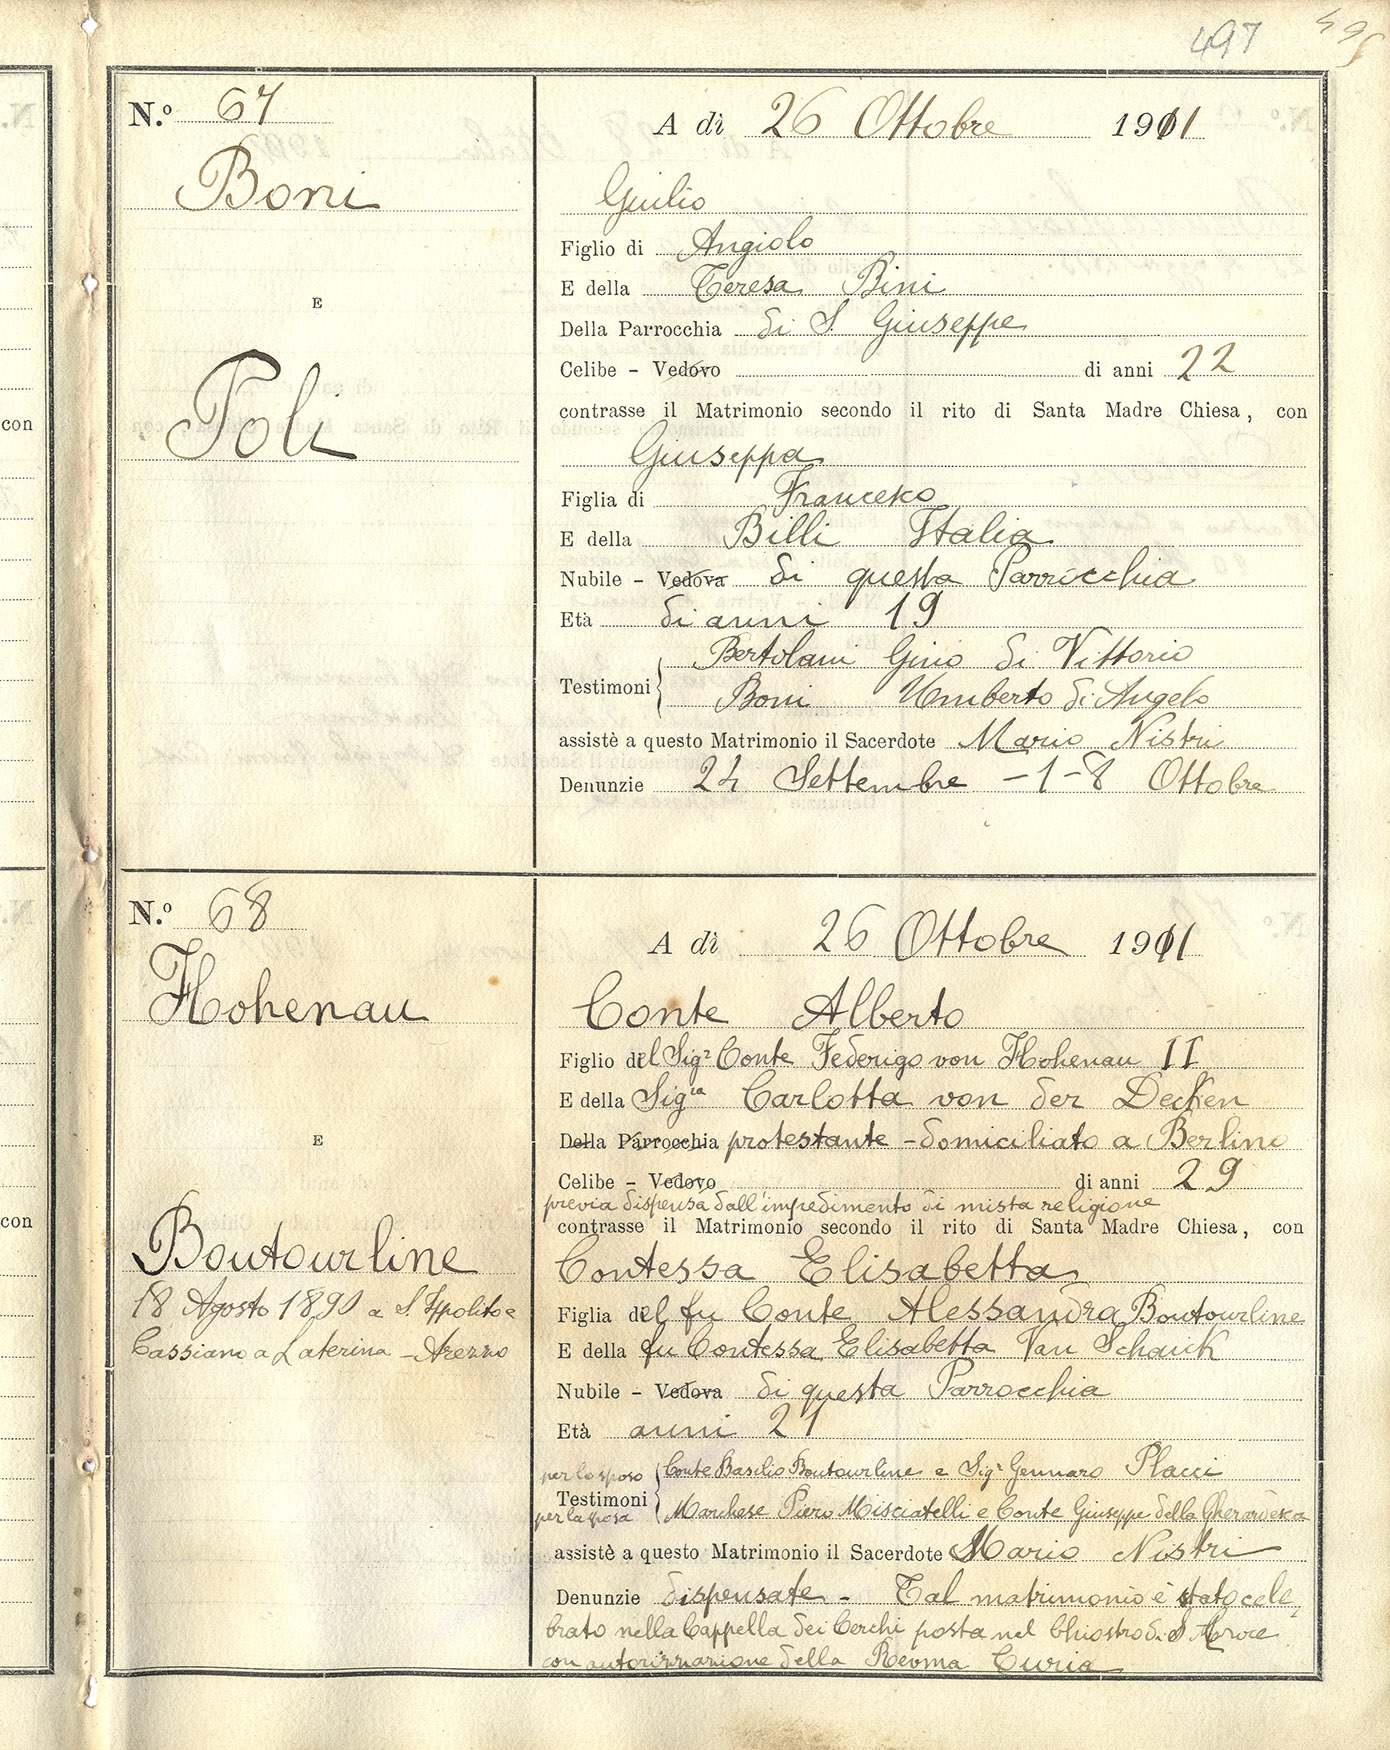 497
N.º 67
Boni
E
Poli
A dì 26 Ottobre 1911
Giulio
Figlio di Angiolo
E della Teresa Bini
Della Parrocchia di S. Giuseppe
Celibe - Vedovo di anni 22
contrasse il Matrimonio secondo il rito di Santa Madre Chiesa, con
Giuseppa
Figlia di Francesco
E della Billi Italia
Nubile - Vedova di questa Parrocchia
Età di anni 19
Bertolani Gino di Vittorio
Testimoni
Boni Umberto di Angelo
assistè a questo Matrimonio il Sacerdote Mario Nistri
Denunzie 24 Settembre - 1 - 8 Ottobre
N.º 68
Hohenau
E
Boutourline
18 Agosto 1890 a S Ippolito e
Cassiano a Laterina - Arezzo
A dì 26 Ottobre 1911
Conte Alberto
Figlio del Sigr Conte Federigo von Hohenau II
E della Sigra Carlotta von der Decken
Della Parrocchia protestante - domiciliato a Berlino
Celibe - Vedovo di anni 29
previa dispensa dall'impedimento di mista religione
contrasse il Matrimonio secondo il rito di Santa Madre Chiesa, con
Contessa Elisabetta
Figlia del fu Conte Alessandra Boutourline
E della fu Contessa Elisabetta Van Schaick
Nubile - Vedova di questa Parrocchia
Età anni 21
per lo sposo Conte Basilio Boutourline e Sigr Gennaro Placci
Testimoni
per la sposa Marchese Piero Misciatelli e Conte Giuseppe della Gherardesca
assistè a questo Matrimonio il Sacerdote Mario Nistri
Denunzie dispensate - Tal matrimonio è stato cele
brato nella Cappella dei Cerchi posta nel Chiostro di S. Croce
con autorizzazione della Revma Curia
con
con